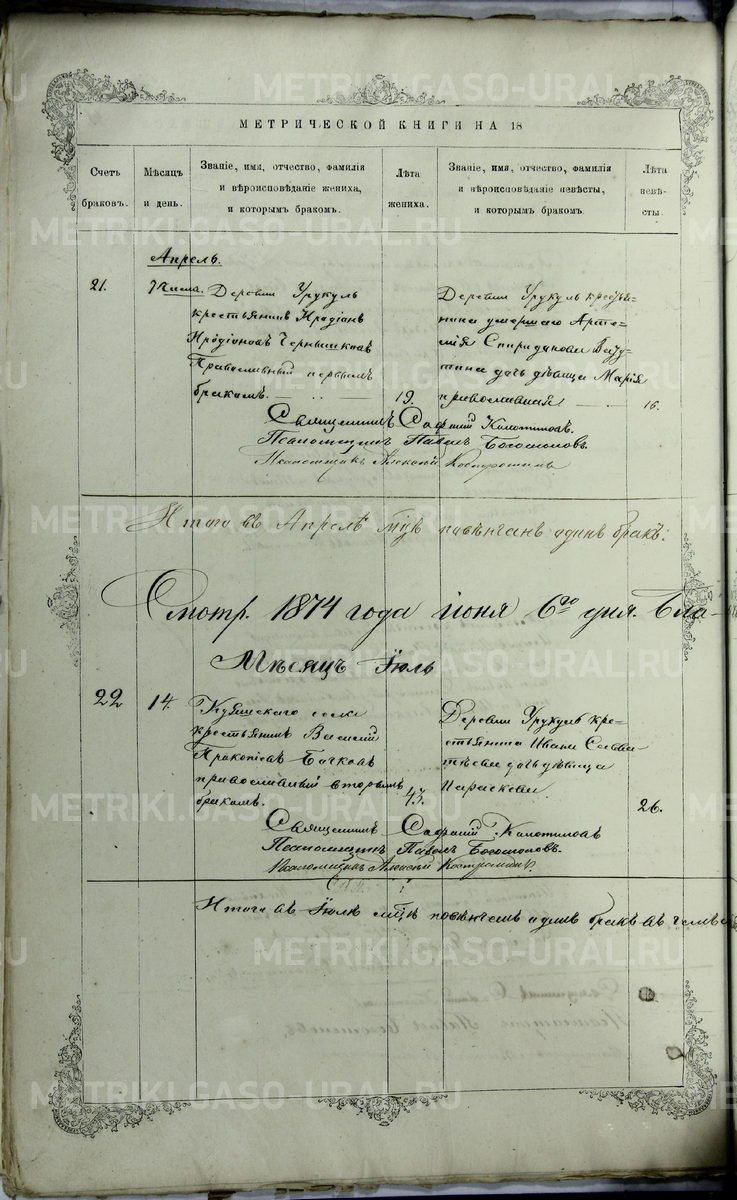 МЕТРИЧЕСКОЙ КНИГИ НА 18
Счетъ браковъ.
Мѣсяцъ и день.
Званіе, имя, отчество, фамилія
и вѣроисповѣданіе жениха,
и которымъ бракомъ.
Лѣта жениха.
Званіе, имя, отчество, фамилія
и вѣроисповѣданіе невѣсты,
и которымъ бракомъ.
Лѣта невѣсты.
Апрель.
21.
7 Числа.
Деревни Урукуль
крестьянинъ Иродіонъ
Иродіоновъ Чернышковъ
Православный первымъ
бракомъ.
19.
Деревни Урукуль кресть-
янина умершаго Арте-
мія Спиридонова
дочь дѣвица Марія
православная
16.
Священникъ Софроній
Псаломщикъ Павелъ Богомоловъ.
Псаломщикъ Алексѣй
Итого въ Апрелѣ мцѣ повѣнчанъ одинъ бракъ.
Смотр. 1874 года іюня 6го дня. Бла-
Мѣсяцъ Іюль
22
14.
села
крестьянинъ Василій
Прокопіевъ Бочковъ
православный вторымъ
бракомъ.
43.
Деревни Урукуль кре-
стьянина Ивана
дочь дѣвица
Параскева.
26.
Священникъ Софроній
Псаломщикъ Павелъ Богомоловъ.
Псаломщикъ Алексѣй
Итого въ Іюлѣ мцѣ повѣнчанъ одинъ бракъ въ чемъ
METRIKI.GASO-URAL.RU